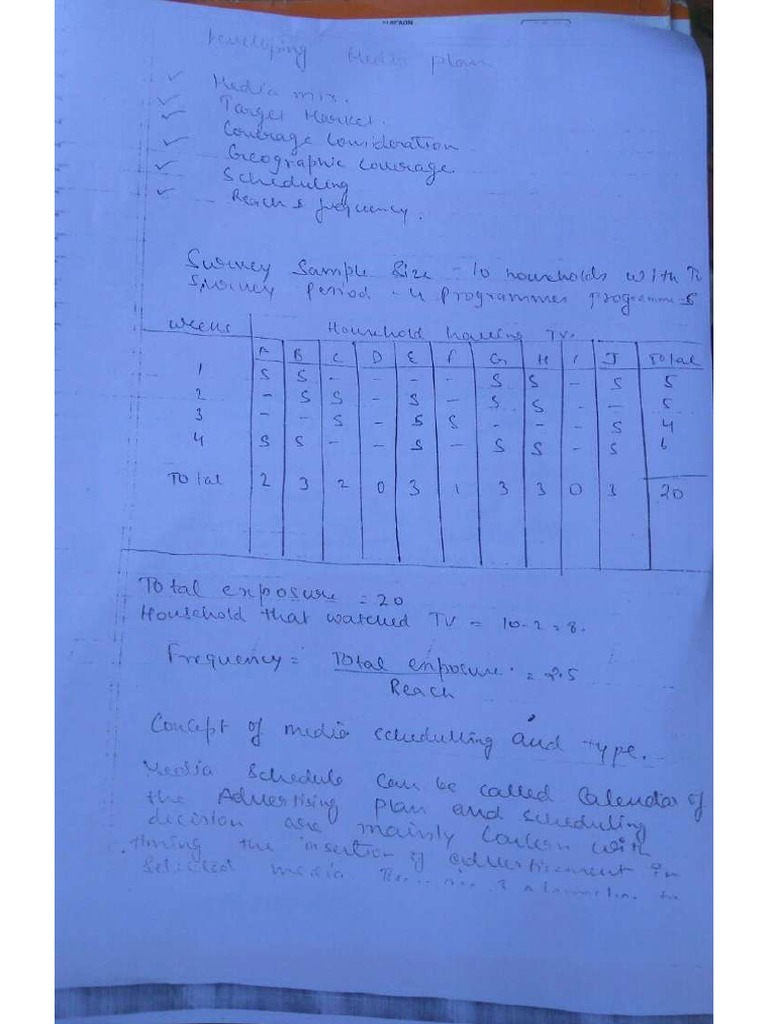 Developing Media plan
✓ Media mix.
✓ Target Market.
✓ Coverage Consideration
✓ Geographic Coverage.
✓ Scheduling
✓ Reach & frequency.
Survey Sample Size - 10 households with TV
Survey period - 4 programmes programme - S
Weeks Household having TV.
A B C D E F G H I J Total
1 S S - - - - S S - S 5
2 - S S - S - S S - - 5
3 - - S - S S - - - S 4
4 S S - - S - S S - S 6
Total 2 3 2 0 3 1 3 3 0 3 20
Total exposure = 20
Household that watched TV = 10-2 = 8.
Frequency = Total exposure = 2.5
Reach
Concept of media scheduling and type.
Media Schedule can be called Calendar of
the Advertising plan and scheduling
decision are mainly with
timing the insertion of advertisement in
Selected media